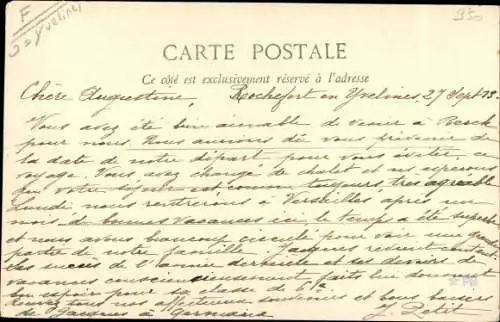 F
3 = Yvelines
950
CARTE POSTALE
Ce côté est exclusivement réservé à l'adresse
Chère Augustine, Rochefort en Yvelines, 27 Sept 13
Vous avez été bien aimable de venir à Berck
pour nous. Nous aurions dû vous prévenir de
la date de notre départ pour vous éviter ce
voyage. Vous avez changé de chalet et ns espérons
que votre séjour est comme toujours très agréable
Lundi nous rentrerons à Versailles après un
mois de bonnes vacances ici le temps a été superbe
et nous avons beaucoup circulé pour voir une grande
partie de notre famille. Jacques
des succès de l'année dernière et ses devoirs de
vacances consciencieusement faits lui donnent
bon espoir pour sa classe de 6e
tous nos affectueux souvenirs et bons baisers
de Jacques à Germaine J. Petit